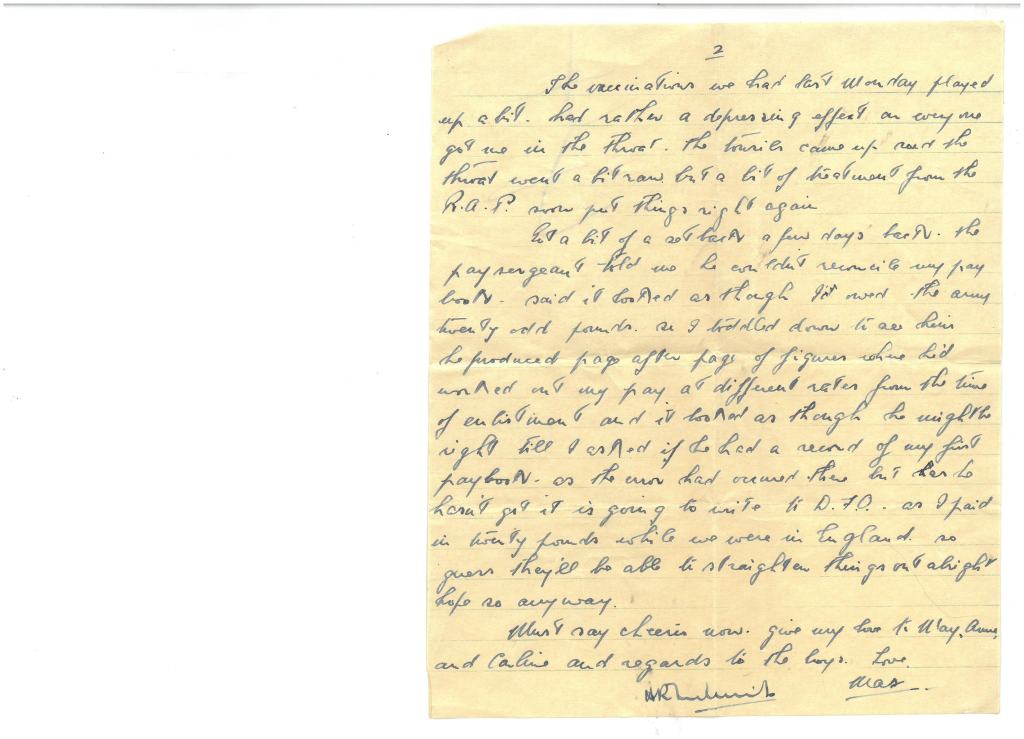 2
The vaccinations we had last Monday played
up a bit. had rather a depressing effect on everyone
got me in the throat. the tonsils came up and the
throat went a bit raw. but a bit of treatment from the
R.A.P. soon put things right again
Hit a bit of a setback a few days back. the
pay sergeant told me he couldn't reconcile my pay
book. said it looked as though I'd owed the army
twenty odd pounds. so I toddled down to see him
he produced page after page of figures where he'd
worked out my pay at different rates from the time
of enlistment and it looked as though he might be
right till I asked if he had a record of my first
paybook. as the error had occured there but he
hasn't got it is going to write to D.F.O. as I paid
in twenty pounds while we were in England. so
guess they'll be able to straighten things out alright
hope so anyway.
Must say cheerio now. give my love to May, Anne,
and Carline and regards to the boys. Love.
Max